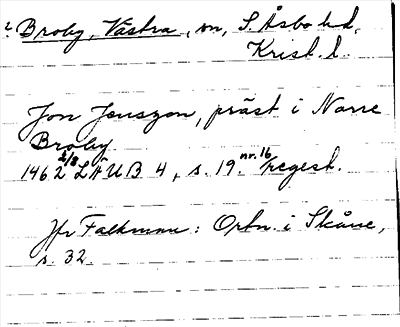 ? Broby, Västra, sn, S. Åsbo hd,
Krist. l.
Jon Jenszon, präst i Norre
Broby
1462 2/8 LÄUB 4, s. 19. nr. 16 regest.
Jfr Falkman: Ortn. i Skåne,
s. 32.